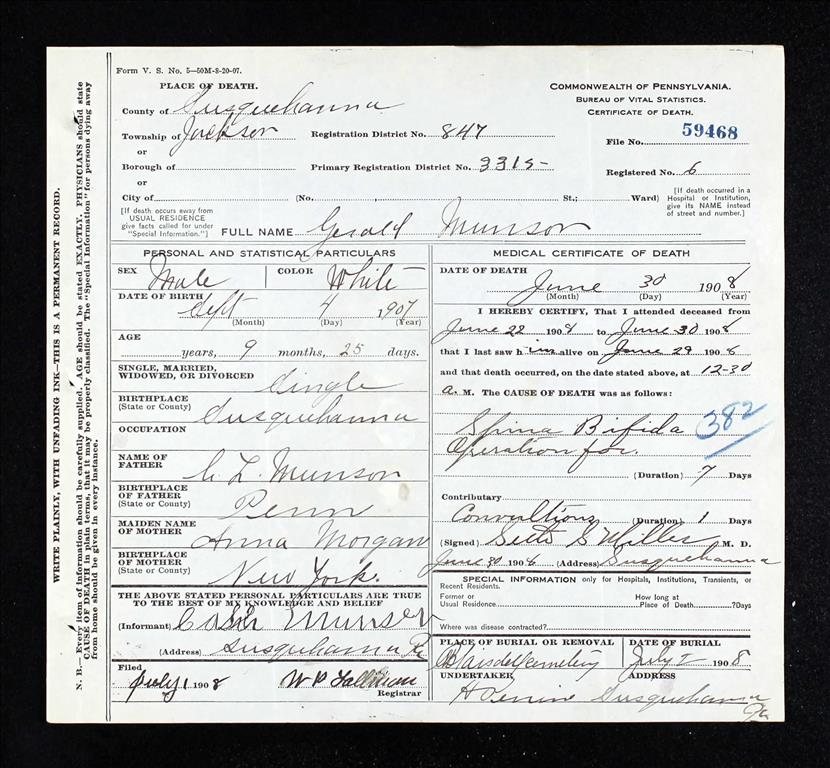 WRITE PLAINLY, WITH UNFADING INK—THIS IS A PERMANENT RECORD.
N. B.— Every item of information should be carefully supplied. AGE should be stated EXACTLY. PHYSICIANS should state
CAUSE OF DEATH in plain terms, that it may be properly classified. The "Special Information" for persons dying away
from home should be given in every instance.
Form V. S. No. 5—50M-8-20-07.
PLACE OF DEATH.
County of Susquehanna
Township of Jackson Registration District No. 847
or
Borough of Primary Registration District No. 3315-
or
City of (No. , St.; Ward)
COMMONWEALTH OF PENNSYLVANIA.
BUREAU OF VITAL STATISTICS.
CERTIFICATE OF DEATH.
File No. 59468
Registered No. 6
[If death occurred in a
Hospital or Institution,
give its NAME instead
of street and number.]
[If death occurs away from
USUAL RESIDENCE
give facts called for under
"Special Information."]
FULL NAME Gerald Munson
PERSONAL AND STATISTICAL PARTICULARS
SEX Male COLOR White
DATE OF BIRTH Sept 4 1907
(Month) (Day) (Year)
AGE
years, 9 months, 25 days.
SINGLE, MARRIED,
WIDOWED, OR DIVORCED Single
BIRTHPLACE
(State or County) Susquehanna
OCCUPATION
NAME OF
FATHER C. L. Munson
BIRTHPLACE
OF FATHER
(State or County) Penn
MAIDEN NAME
OF MOTHER Anna Morgan
BIRTHPLACE
OF MOTHER
(State or County) New York.
THE ABOVE STATED PERSONAL PARTICULARS ARE TRUE
TO THE BEST OF MY KNOWLEDGE AND BELIEF
(Informant) Munson
(Address) Susquehanna Pa
Filed
July 1 1908 W P
Registrar
MEDICAL CERTIFICATE OF DEATH
DATE OF DEATH
June 30 1908
(Month) (Day) (Year)
I HEREBY CERTIFY, That I attended deceased from
June 22 1908 to June 30 1908
that I last saw him alive on June 29 1908
and that death occurred, on the date stated above, at 12-30
a. M. The CAUSE OF DEATH was as follows:
Spina Bifida 382
Operation for.
(Duration) 7 Days
Contributory
Convultions (Duration) 1 Days
(Signed) S Miller M. D.
June 30 1908 (Address) Susquehanna
SPECIAL INFORMATION only for Hospitals, Institutions, Transients, or
Recent Residents.
Former or
Usual Residence
How long at
Place of Death? Days
Where was disease contracted?
PLACE OF BURIAL OR REMOVAL DATE OF BURIAL
Blaisdell Cemetery July 2 1908
UNDERTAKER ADDRESS
H Perrine Susquehanna
Pa